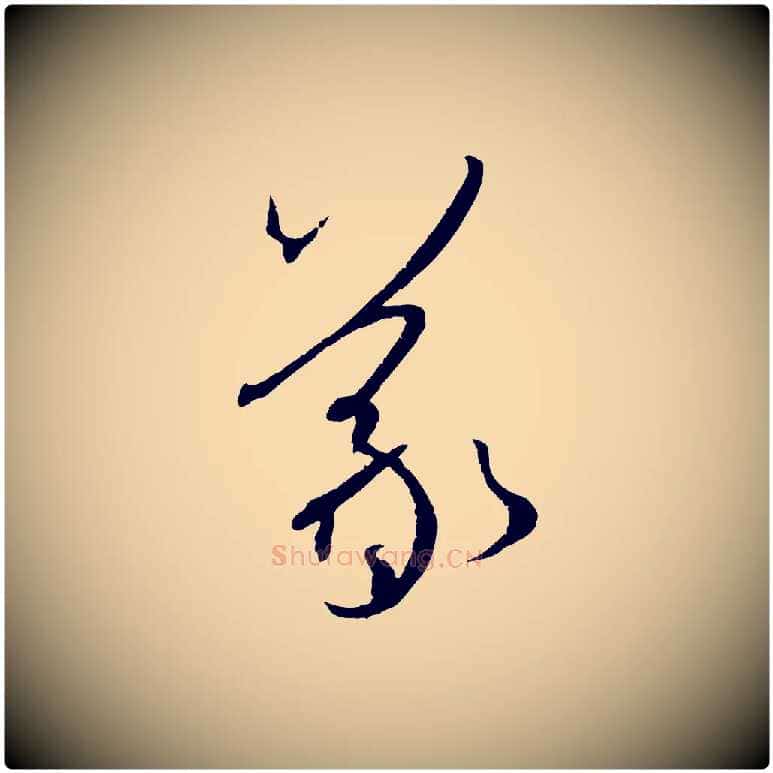 蒙
Shufawang.CN